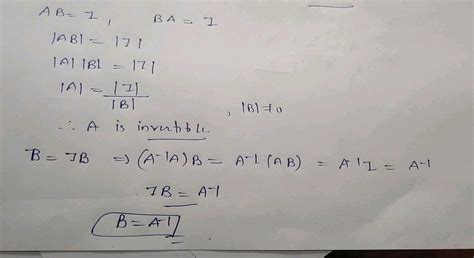 AB = I, BA = I
|AB| = |I|
|A| |B| = |I|
|A| = |I| / |B| , |B| ≠ 0
∴ A is invertible.
B = IB ⇒ (A⁻¹A)B = A⁻¹(AB) = A⁻¹I = A⁻¹
IB = A⁻¹
B = A⁻¹